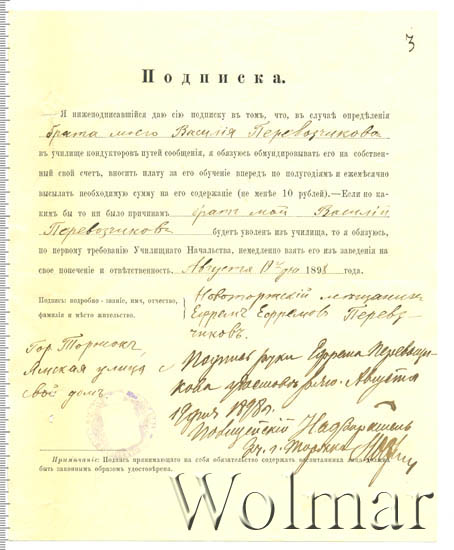 3
Подписка.
Я нижеподписавшійся даю сію подписку въ томъ, что, въ случаѣ опредѣленія
брата моего Василія Перевозчикова
въ училище кондукторовъ путей сообщенія, я обязуюсь обмундировывать его на собствен-
ный свой счетъ, вносить плату за его обученіе впередъ по полугодіямъ и ежемѣсячно
высылать необходимую сумму на его содержаніе (не менѣе 10 рублей).—Если по ка-
кимъ бы то ни было причинамъ братъ мой Василій
Перевозчиковъ будетъ уволенъ изъ училища, то я обязуюсь,
по первому требованію Училищнаго Начальства, немедленно взять его изъ заведенія на
свое попеченіе и отвѣтственность. Августа 19 дня 1898 года.
Подпись: подробно - званіе, имя, отчество,
фамилія и мѣсто жительство.
Новоторжскій мѣщанинъ
Ефремъ Ефремовъ Перевоз-
чиковъ.
Гор. Торжокъ,
Ямская улица
свой домъ.
Подпись руки Ефрема Перевозчи-
кова Августа
19 дня 1898 г.
Полицейскій Надзиратель
г. Торжка
Примѣчаніе: Подпись принимающаго на себя обязательство содержать воспитанника должна
быть законнымъ образомъ удостовѣрена.
Wolmar